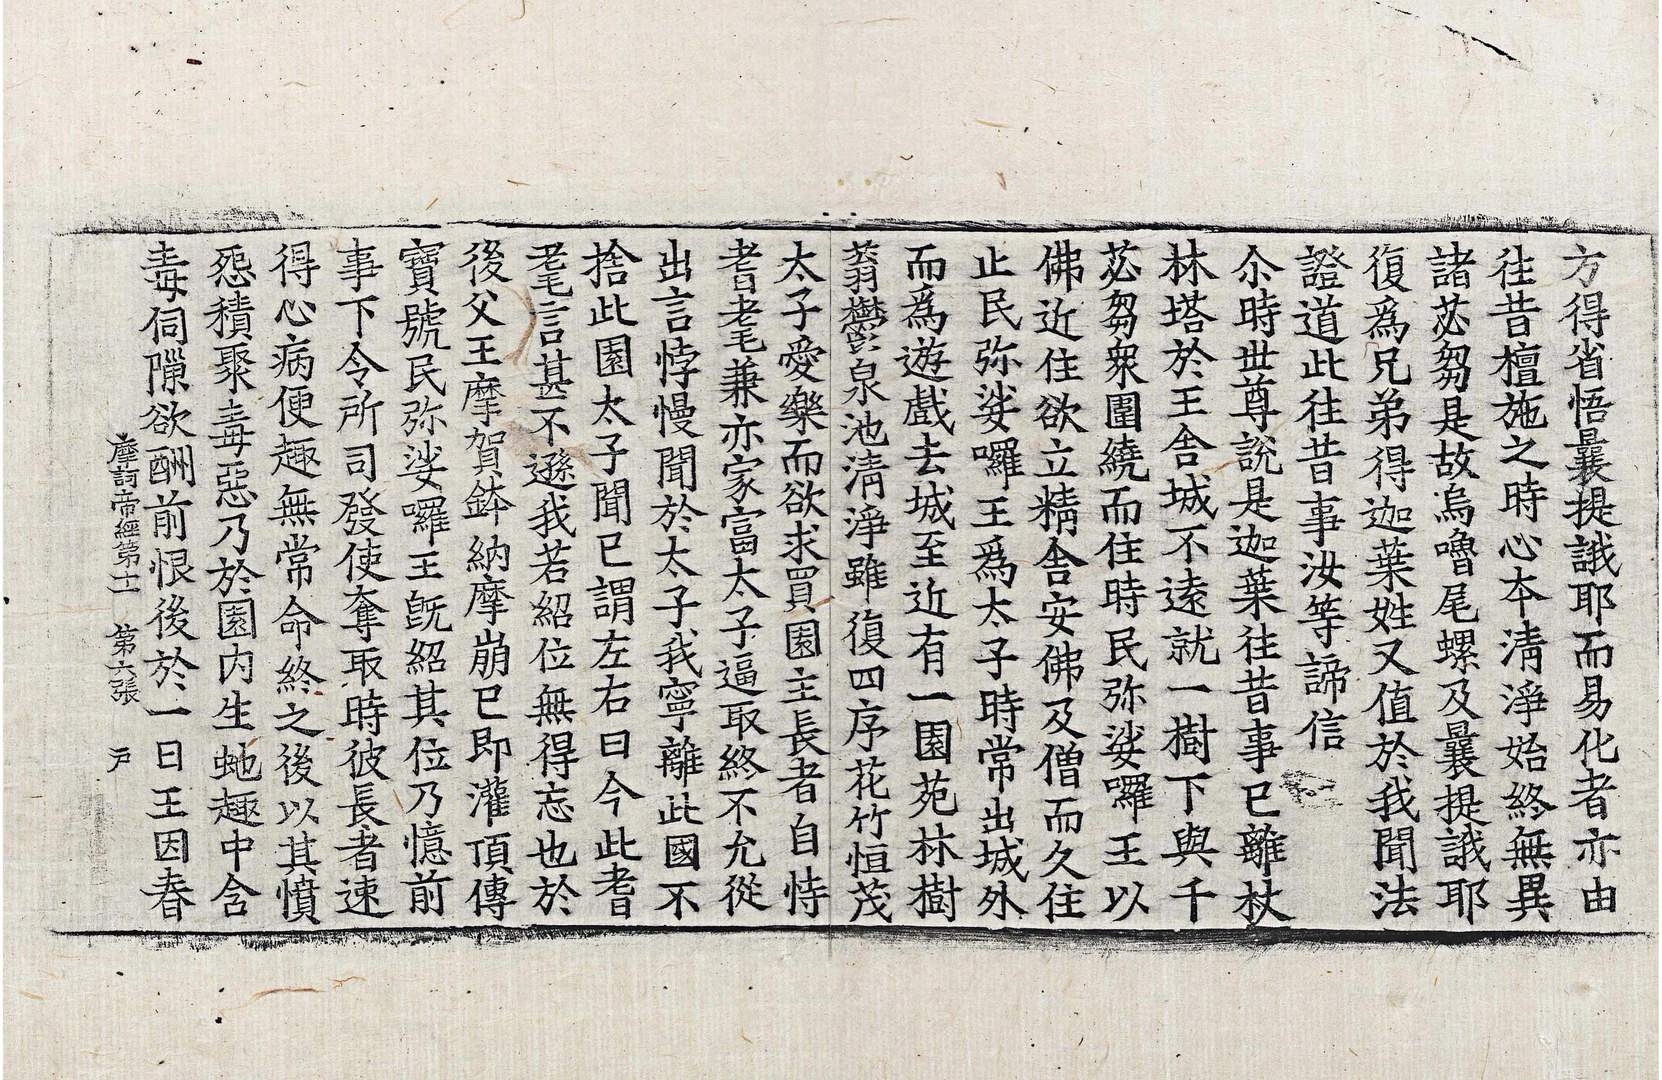 方得省悟曩提誐耶而易化者亦由
往昔檀施之時心本清淨始終無異
諸苾芻是故烏嚕尾螺及曩提誐耶
復爲兄弟得迦葉姓又值於我聞法
證道此往昔事汝等諦信
尒時世尊說是迦葉往昔事已離杖
林塔於王舍城不遠就一樹下與千
苾芻衆圍繞而住時民弥娑囉王以
佛近住欲立精舍安佛及僧而久住
止民弥娑囉王爲太子時常出城外
而爲遊戲去城至近有一園苑林樹
蓊欝泉池清淨雖復四序花竹恒茂
太子愛樂而欲求買園主長者自恃
耆老兼亦家富太子逼取終不允從
出言悖慢聞於太子我寧離此國不
捨此園太子聞已謂左右曰今此耆
耄言甚不遜我若紹位無得忘也於
後父王摩賀鉢納摩崩已即灌頂傳
寶號民弥娑囉王旣紹其位乃憶前
事下令所司發使奪取時彼長者速
得心病便趣無常命終之後以其憤
怨積聚毒惡乃於園內生虵趣中含
毒伺隙欲酬前恨後於一日王因春
摩訶帝經第十二　第六張　戶